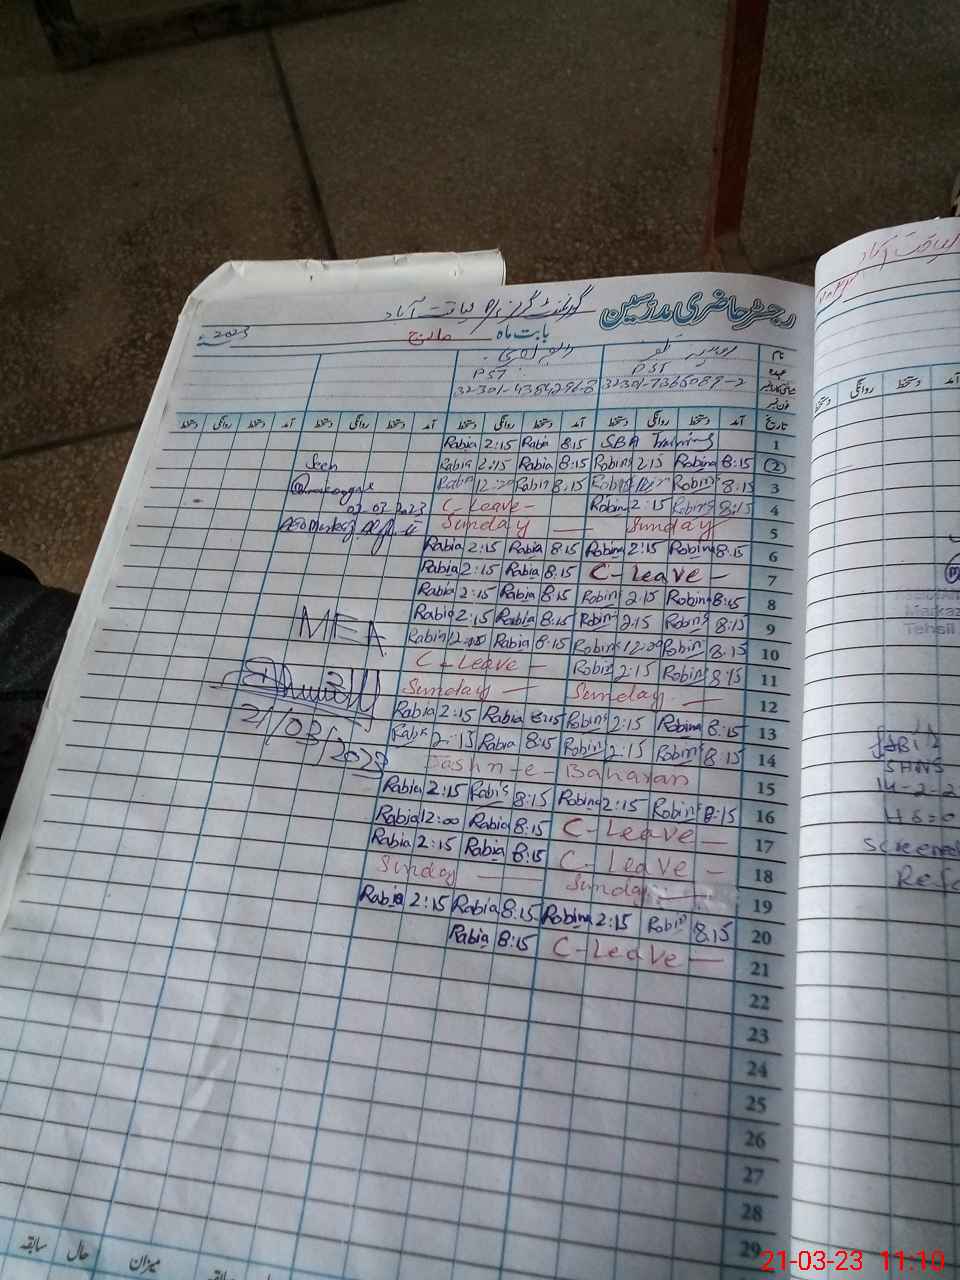 رجسٹر حاضری مدرسین
بابت ماہ مارچ 2023
نام
عہدہ
PST PST
32301-7365089-2 32301-4384296-8
تاریخ آمد دستخط روانگی دستخط آمد دستخط روانگی دستخط آمد دستخط روانگی دستخط آمد دستخط روانگی دستخط
Rabia 2:15 Rabia 8:15 SBA Training 1
Rabia 2:15 Rabia 8:15 Robina 2:15 Robina 8:15 2
Seen
Rabia 12:20 Rabia 8:15 Robina Robina 8:15 3
02-03-2023
C Leave - Robina 2:15 Robina 8:15 4
Sunday — Sunday 5
Rabia 2:15 Rabia 8:15 Robina 2:15 Robina 8:15 6
Rabia 2:15 Rabia 8:15 C-Leave - 7
Rabia 2:15 Rabia 8:15 Robina 2:15 Robina 8:15 8
Rabia 2:15 Rabia 8:15 Robina 2:15 Robina 8:15 9
MEA
Rabia Rabia 8:15 Robina Robina 8:15 10
C-Leave - Robina 2:15 Robina 8:15 11
Sunday — Sunday — 12
Rabia 2:15 Rabia 8:15 Robina 2:15 Robina 8:15 13
21/03/2023
Rabia 2:15 Rabia 8:15 Robina 2:15 Robina 8:15 14
Jashn-e-Baharan 15
Rabia 2:15 Rabia 8:15 Robina 2:15 Robina 8:15 16
Rabia 12:00 Rabia 8:15 C-Leave - 17
Rabia 2:15 Rabia 8:15 C-Leave - 18
Sunday — Sunday 19
Rabia 2:15 Rabia 8:15 Robina 2:15 Robina 8:15 20
Rabia 8:15 C-Leave — 21
22
23
24
25
26
27
28
29
میزان حال سابقہ
آمد دستخط روانگی دستخط
Markaz
Tehsil
SHNS
14-2-2
Screened
21-03-23 11:10